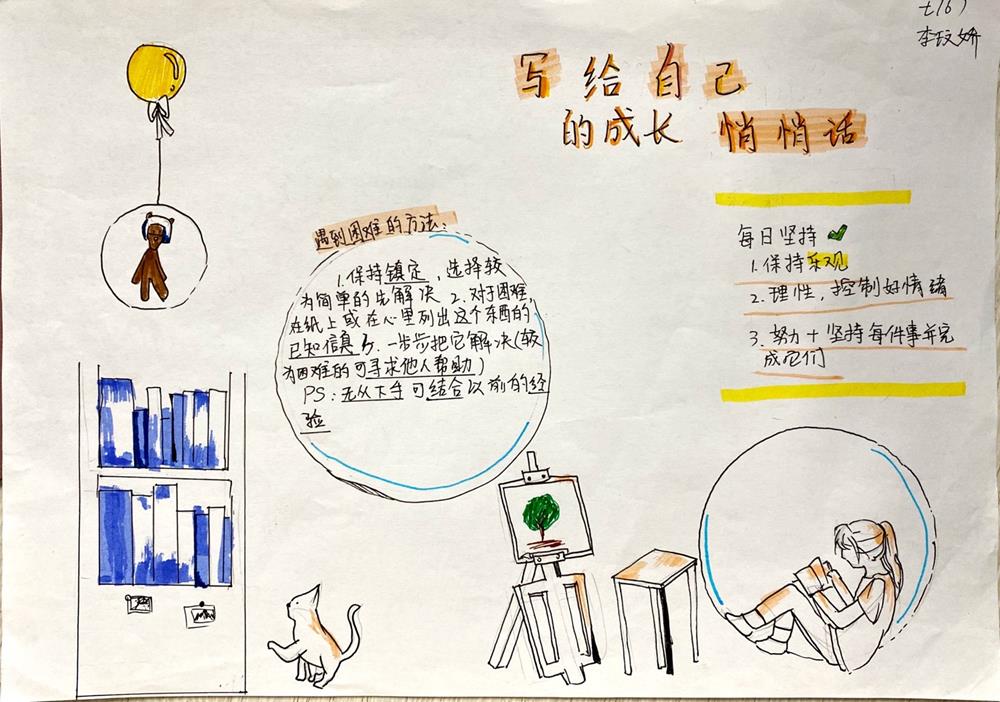 七(6)
李玟娇
写给自己
的成长 悄悄话
遇到困难的方法：
1.保持镇定，选择较
为简单的先解决 2.对于困难，
在纸上或在心里列出这个东西的
已知信息 3.一步步把它解决(较
为困难的可寻求他人帮助)
PS：无从下手可结合以前的经
验
每日坚持
1.保持乐观
2.理性，控制好情绪
3.努力+坚持每件事并完
成它们